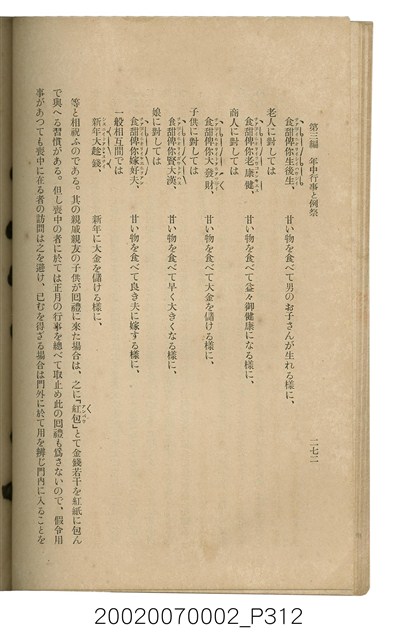 第三編　年中行事と例祭　二七二
食甜俾你生後生、　甘い物を食べて男のお子さんが生れる樣に、
老人に對しては
食甜俾你老康健、　甘い物を食べて益々御健康になる樣に、
商人に對しては
食甜俾你大發財、　甘い物を食べて大金を儲ける樣に、
子供に對しては
食甜俾你賢大漢、　甘い物を食べて早く大きくなる樣に、
娘に對しては
食甜俾你嫁好夫、　甘い物を食べて良き夫に嫁する樣に、
一般相互間では
新年大趁錢、　新年に大金を儲ける樣に、
等と相祝ふのである。其の親戚親友の子供が囘禮に來た場合は、之に「紅包」とて金錢若干を紅紙に包ん
で與へる習慣がある。但し喪中の者に於ては正月の行事を總べて取止め此の囘禮も爲さないので、假令用
事があつても喪中に在る者の訪問は之を避け、已むを得ざる場合は門外に於て用を辨じ門內に入ることを
20020070002_P312